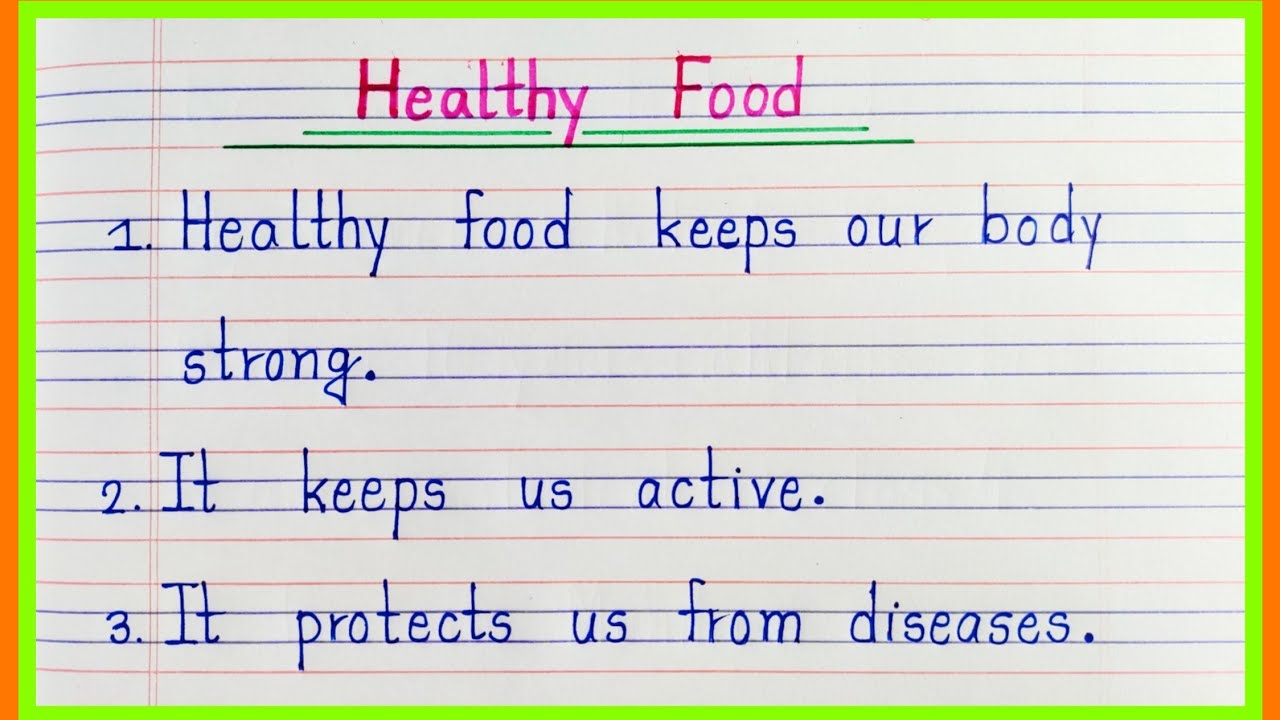 Healthy Food
1. Healthy food keeps our body
strong.
2. It keeps us active.
3. It protects us from diseases.